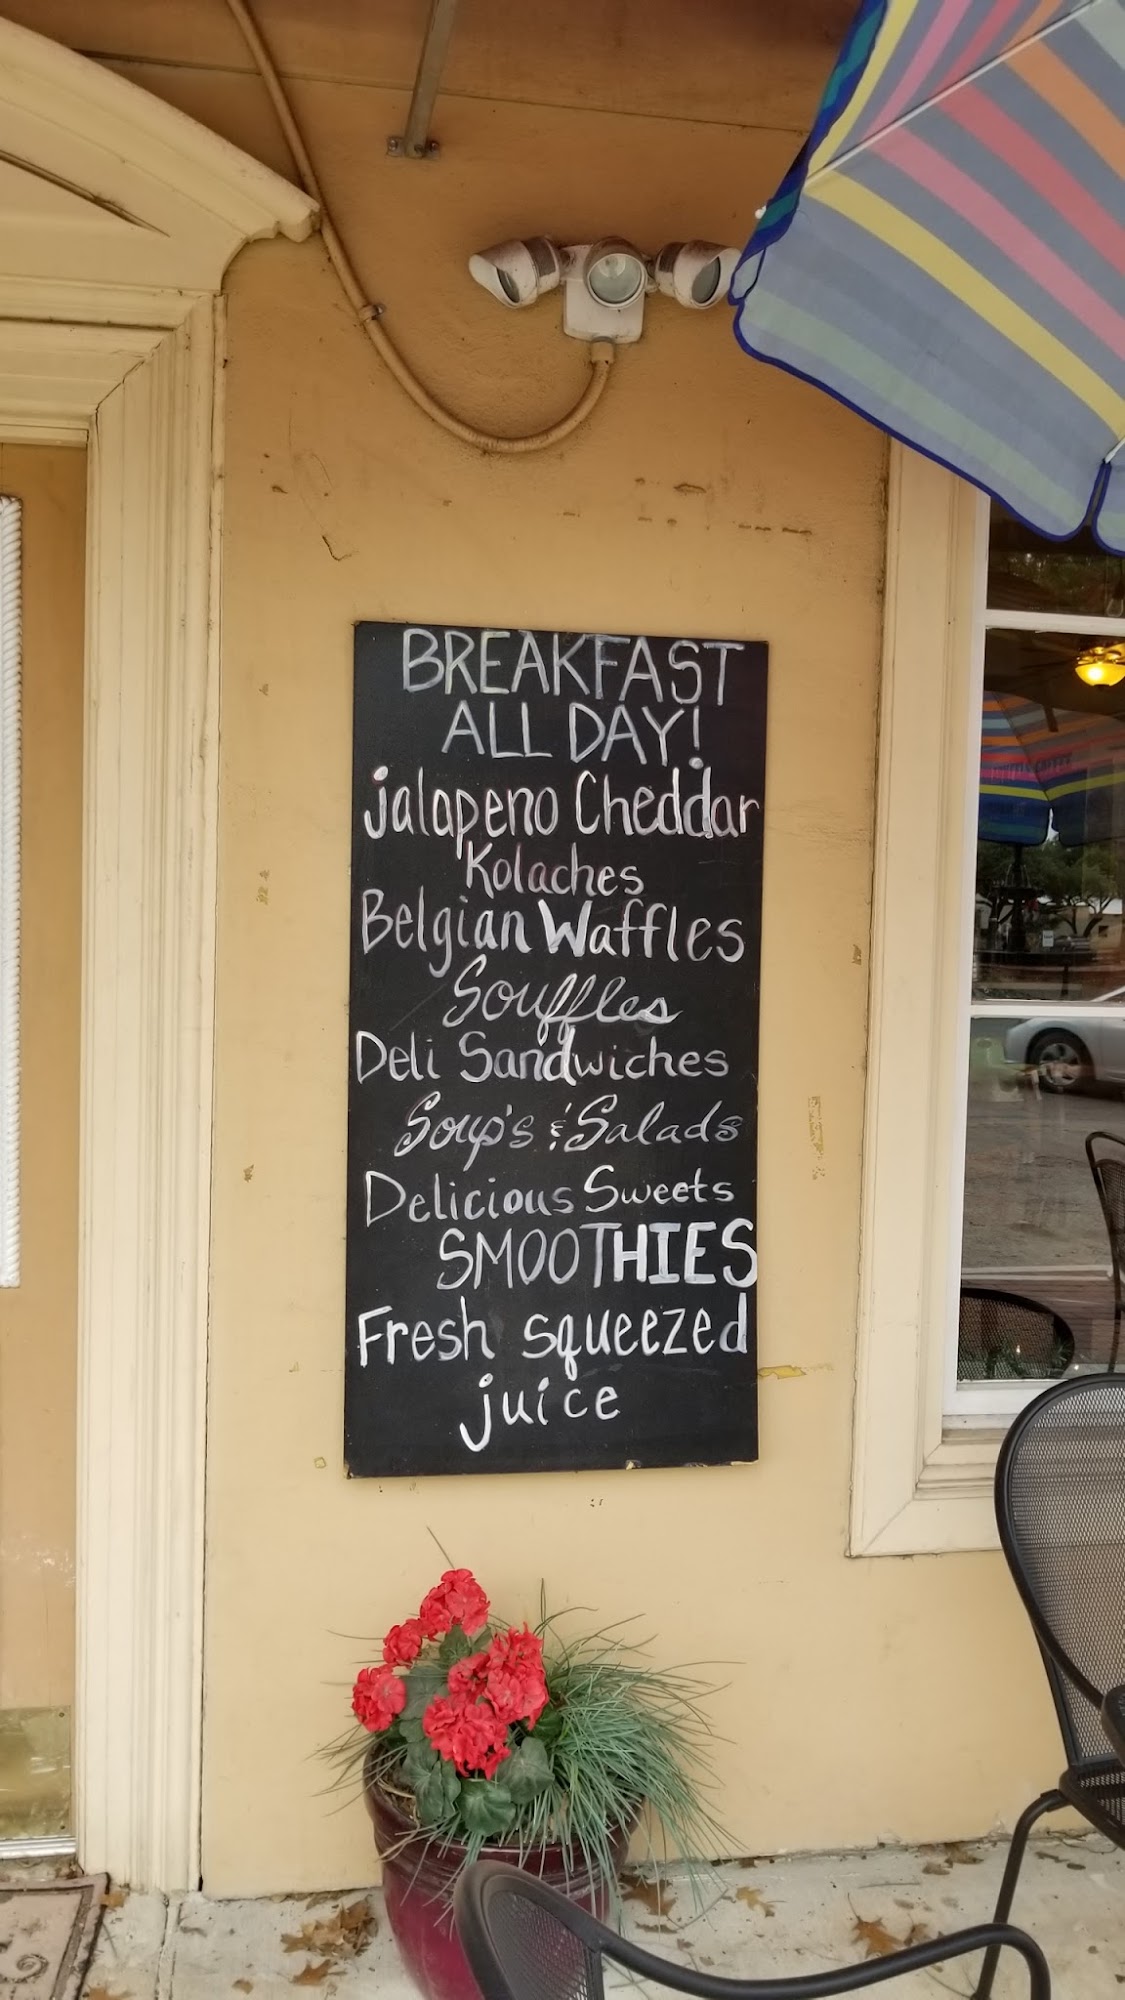 BREAKFAST
ALL DAY!
jalapeno Cheddar
Kolaches
Belgian Waffles
Souffles
Deli Sandwiches
Soup's & Salads
Delicious Sweets
SMOOTHIES
Fresh squeezed
juice